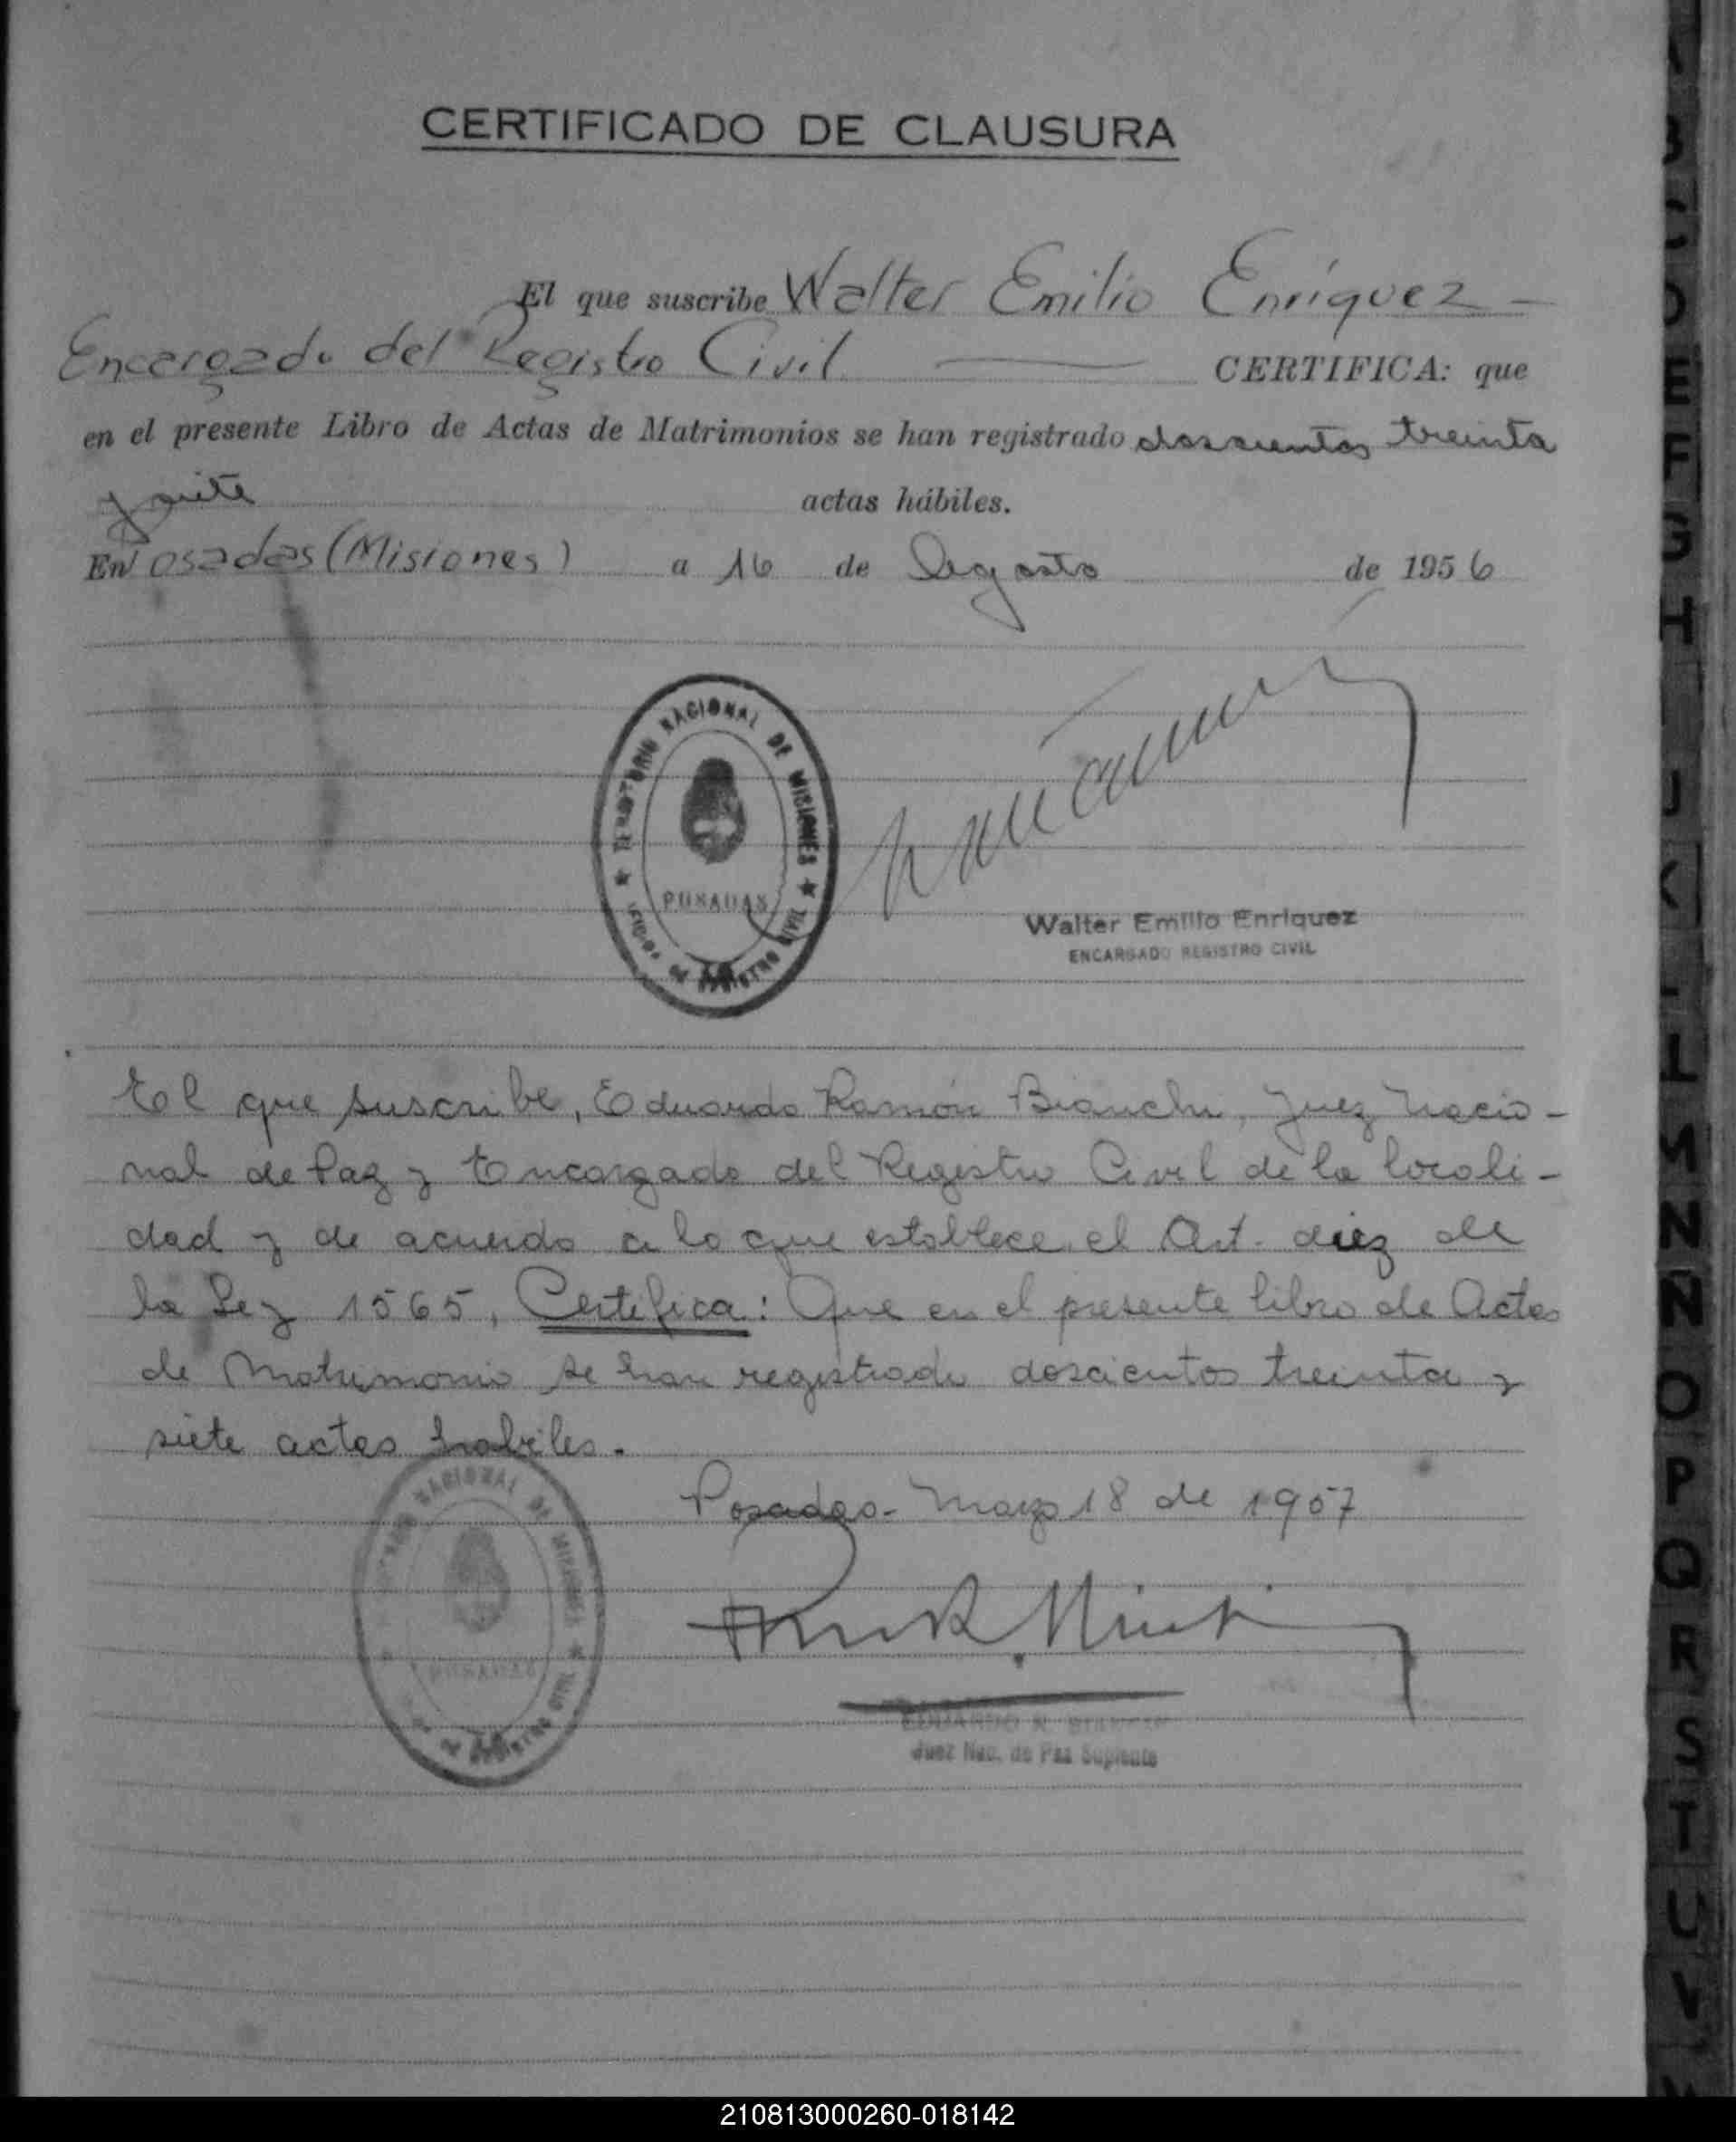 CERTIFICADO DE CLAUSURA
El que suscribe Walter Emilio Enríquez -
Encargado del Registro Civil CERTIFICA: que
en el presente Libro de Actas de Matrimonios se han registrado doscientos treinta
y siete actas hábiles.
En Posadas (Misiones) a 16 de Agosto de 1956
TERRITORIO NACIONAL DE MISIONES
POSADAS
DE REGISTRO CIVIL
Walter Emilio Enriquez
ENCARGADO REGISTRO CIVIL
El que suscribe, Eduardo Ramón Bianchi, Juez Nacio-
nal de Paz y Encargado del Registro Civil de la locali-
dad y de acuerdo a lo que establece el Art. diez de
la Ley 1565, Certifica: Que en el presente libro de Actas
de Matrimonio se han registrado doscientos treinta y
siete actas habiles.
Posadas - Marzo 18 de 1957
NACIONAL DE MISIONES
POSADAS
DE REGISTRO CIVIL
EDUARDO R. BIANCHI
Juez Nac. de Paz Suplente
A
B
C
D
E
F
G
H
I
J
K
L
M
N
Ñ
O
P
Q
R
S
T
U
V
210813000260-018142